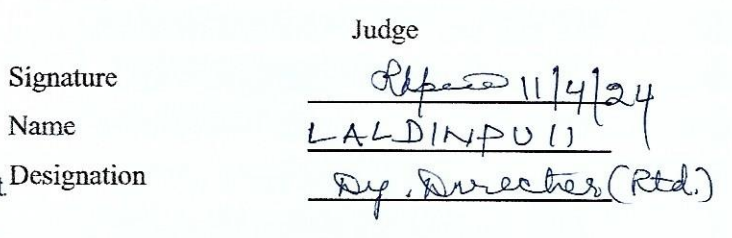 Judge
Signature 11/4/24
Name LALDINPUII
Designation Dy. Director (Rtd.)